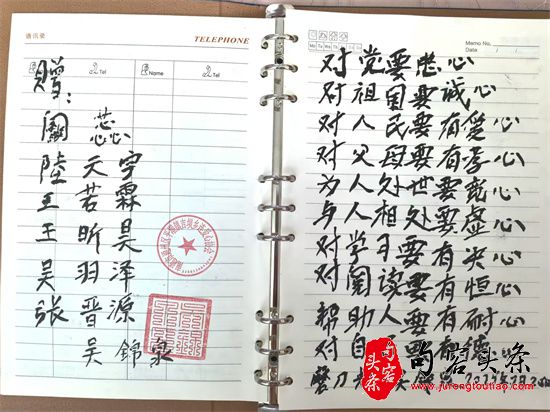 通讯录
TELEPHONE
Tel
Name
Tel
赠：
阚 蕊
陸 天 宇
王 若 霖
王 昕 昊
吴 羽 泽
张 晋 源
吴 錦 泉
Memo No.
Mo Tu We Th Fr Sa Su
Date
对党要忠心
对祖国要诚心
对人民要有爱心
对父母要有孝心
为人处世要宽心
与人相处要虚心
对学习要有决心
对阅读要有恒心
帮助人要有耐心
对自
句容头条
句容头条
www.jurongtoutiao.com